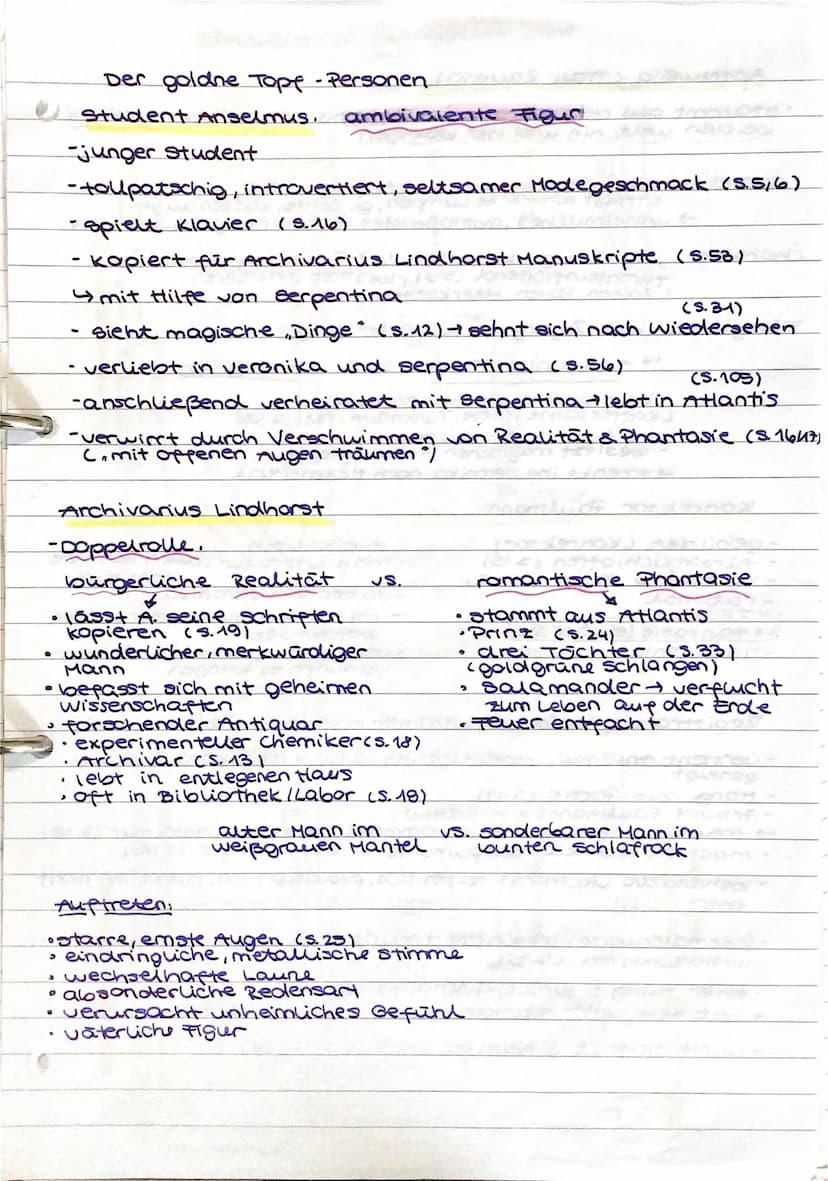 Der goldne Topf - Personen
Student Anselmus. ambivalente Figur
-junger Student
-tollpatschig, introvertiert, seltsamer Modegeschmack (S.5,6)
- spielt Klavier (S.16)
- kopiert für Archivarius Lindhorst Manuskripte (S.53)
↳ mit Hilfe von Serpentina
(S.31)
- sieht magische „Dinge" (S.12) → sehnt sich nach Wiedersehen
- verliebt in Veronika und Serpentina (S.56)
(S.105)
-anschließend verheiratet mit Serpentina → lebt in Atlantis
-verwirrt durch Verschwimmen von Realität & Phantasie (S.16,17)
(„mit offenen Augen träumen")
Archivarius Lindhorst
-Doppelrolle.
bürgerliche Realität vs. romantische Phantasie
• lässt A. seine Schriften
kopieren (S.19)
• wunderlicher, merkwürdiger
Mann
• befasst sich mit geheimen
Wissenschaften
• forschender Antiquar
• experimenteller Chemiker (S.18)
• Archivar (S.13)
• lebt in entlegenen Haus
• oft in Bibliothek / Labor (S.18)
• stammt aus Atlantis
• Prinz (S.24)
• drei Töchter (S.33)
(goldgrüne Schlangen)
• Salamander → verflucht
zum Leben auf der Erde
• Feuer entfacht
alter Mann im vs. sonderbarer Mann im
weißgrauen Mantel bunten Schlafrock
Auftreten:
• starre, ernste Augen (S.25)
• eindringliche, metallische Stimme
• wechselhafte Laune
• absonderliche Redensart
• verursacht unheimliches Gefühl
• väterliche Figur